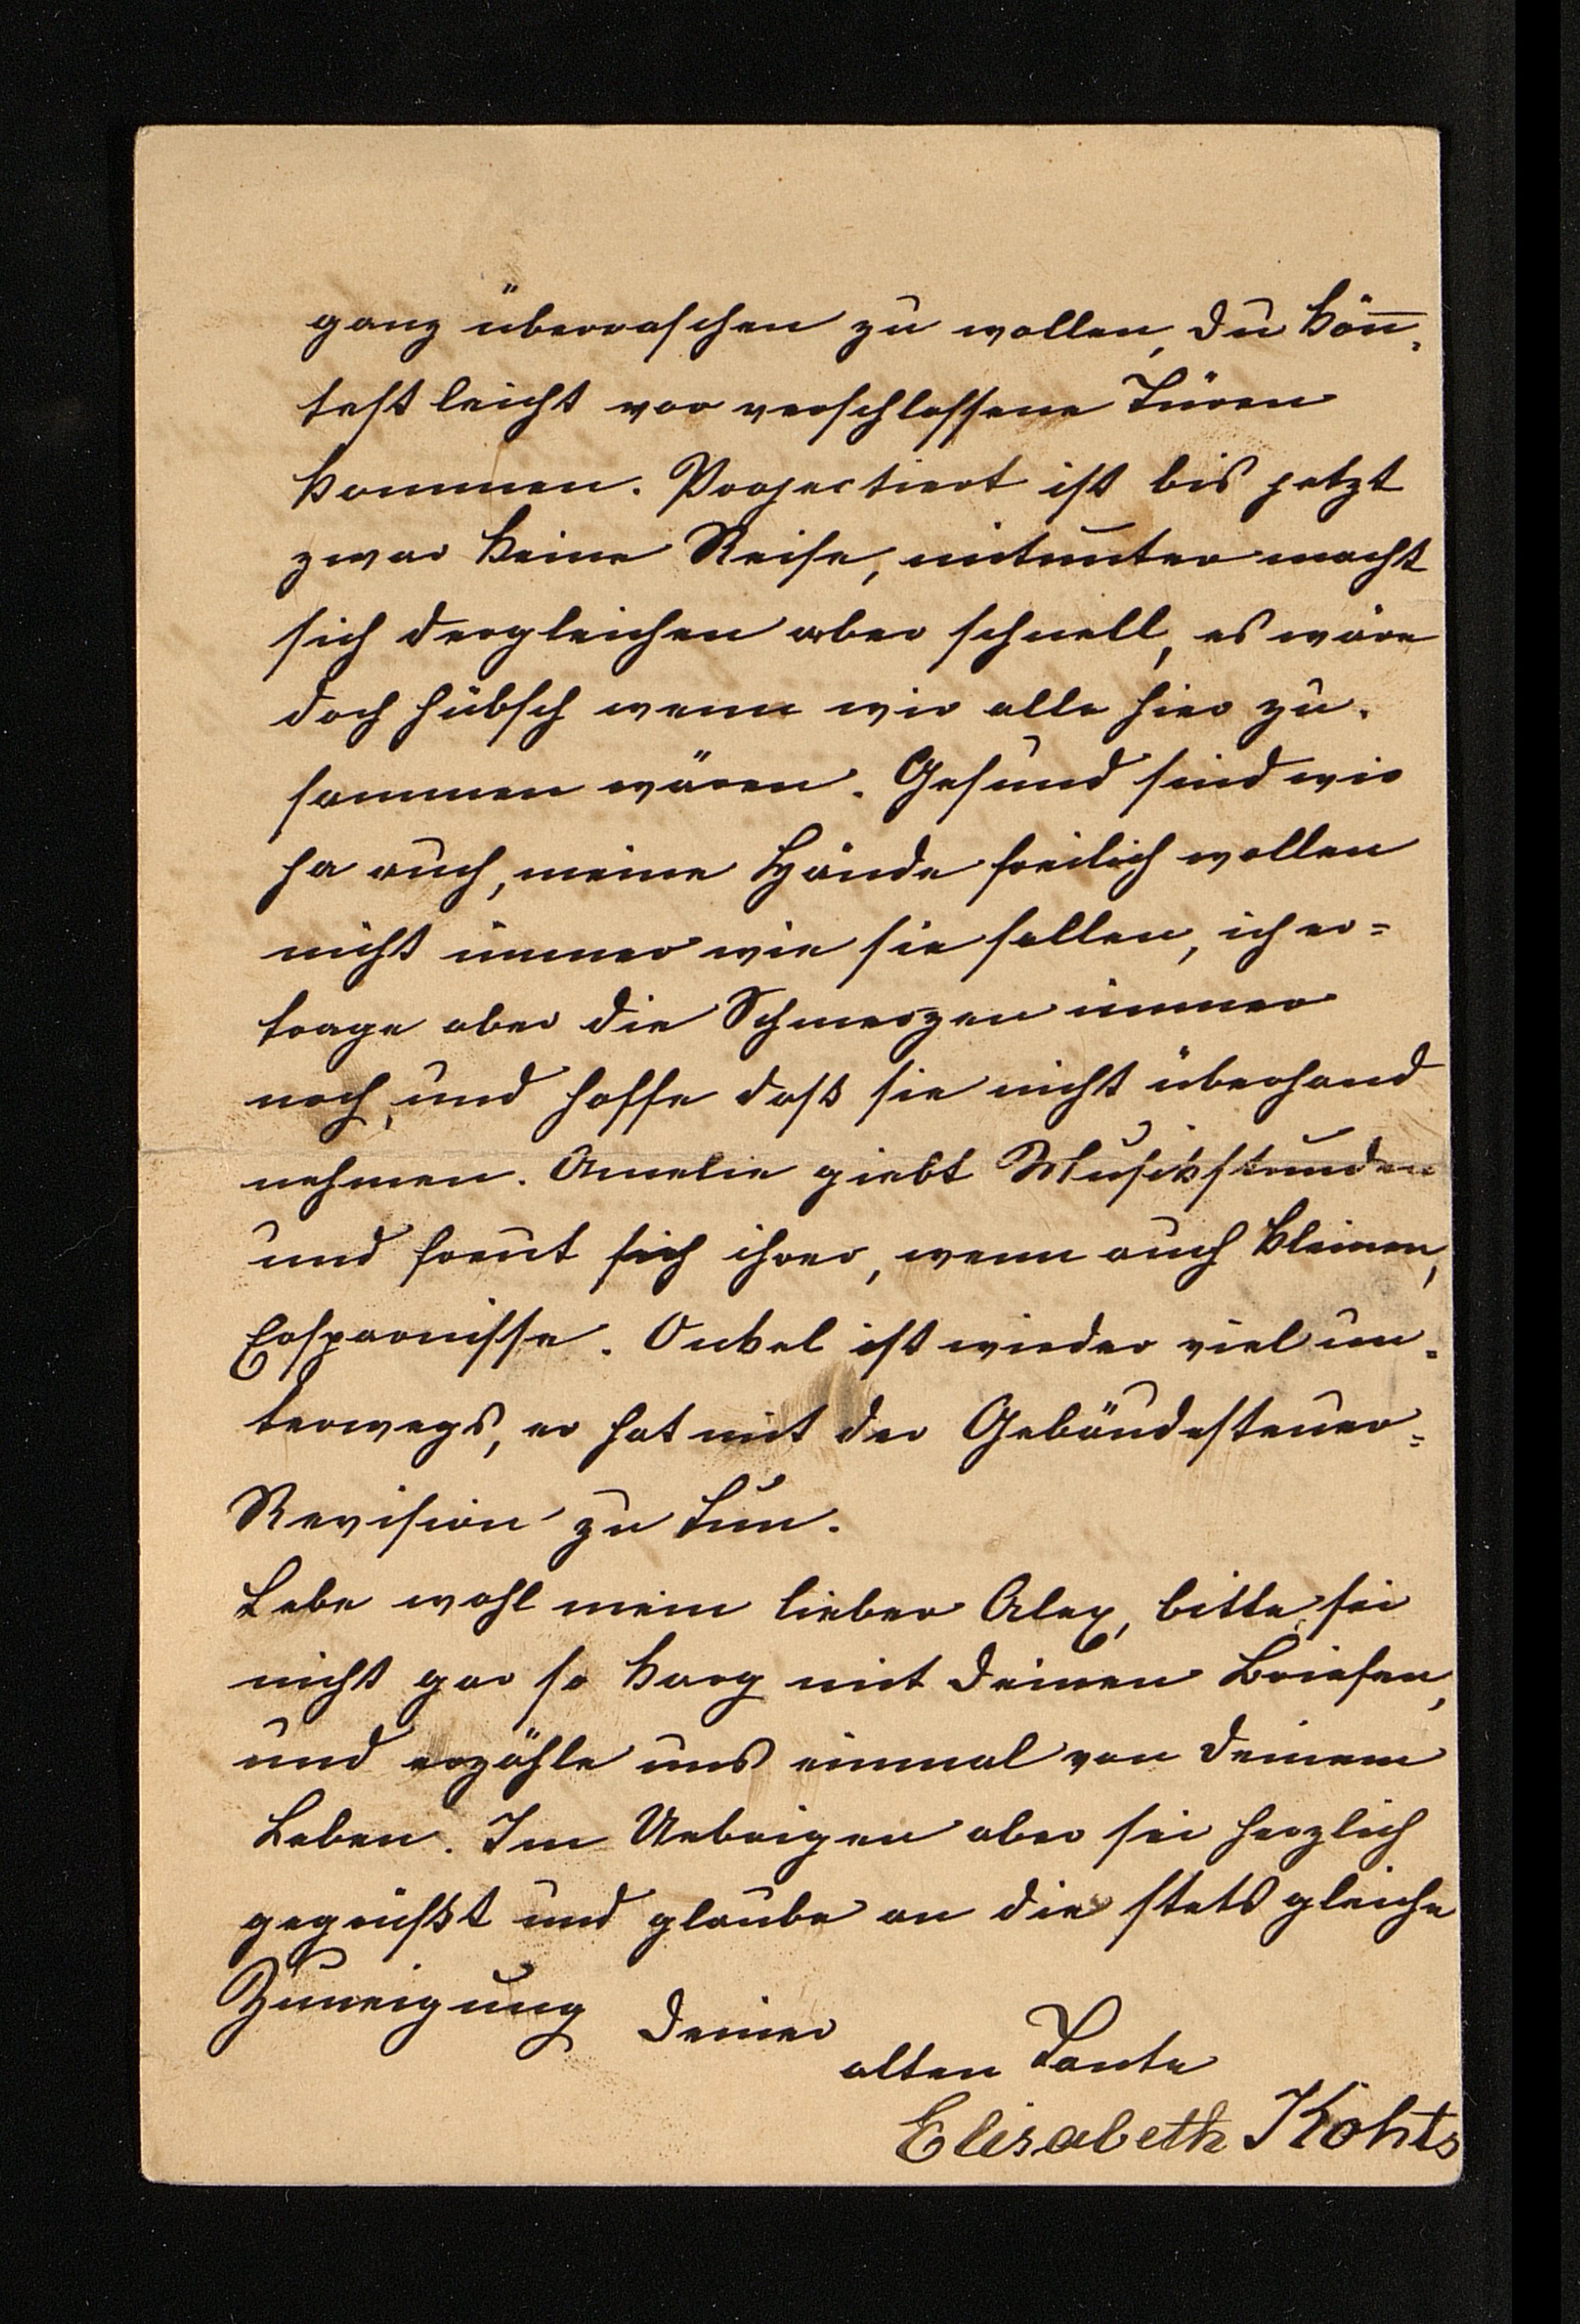 ganz überraschen zu wollen, du kön̄-
test leicht vor verschlossene Türen
kommen. Projectiert ist bis jetzt
zwar keine Reise, mitunter macht
sich dergleichen aber schnell, es wäre
doch hübsch wenn wir alle hier zu-
sammen wären. Gesund sind wir
ja auch, meine Hände freilich wollen
nicht immer wie sie sollen, ich er=
trage aber die Schmerzen immer
noch, und hoffe daß sie nicht überhand
nehmen. Amelie giebt Musikstunden
und freut sich ihrer, wenn auch kleinen,
Ersparnisse. Onkel ist wieder viel un-
terwegs, er hat mit der Gebäudesteuer=
Revision zu tun.
Lebe wohl mein lieber Alex, bitte, sei
nicht gar so karg mit deinen Briefen,
und erzähle uns einmal von deinem
Leben. Im Uebrigen aber sei herzlich
gegrüßt und glaube an die stets gleiche
Zuneigung deiner
alten Tante
Elisabeth Kohts